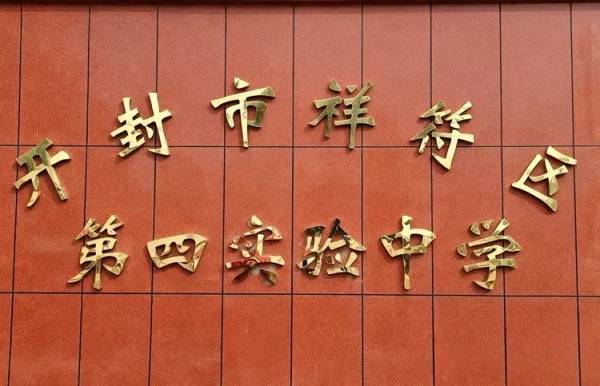 开封市祥符区
第四实验中学